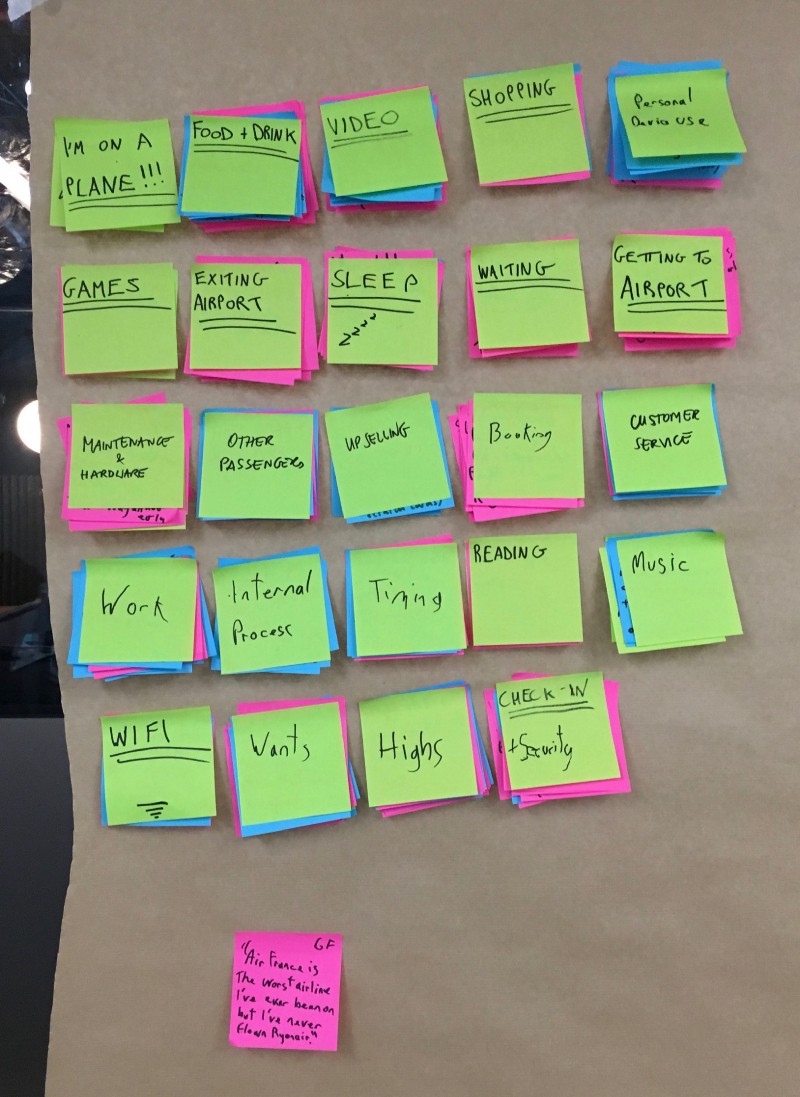 I'M ON A
PLANE!!!
FOOD + DRINK
VIDEO
SHOPPING
Personal
Device USE
GAMES
EXITING
AIRPORT
SLEEP
zzzz
WAITING
GETTING TO
AIRPORT
MAINTENANCE
&
HARDWARE
OTHER
PASSENGERS
UPSELLING
Booking
CUSTOMER
SERVICE
Work
Internal
Process
Timing
READING
Music
WIFI
Wants
Highs
CHECK-IN
+ Security
GF
"Air France is
The worst airline
I've ever been on
but I've never
flown Ryanair."